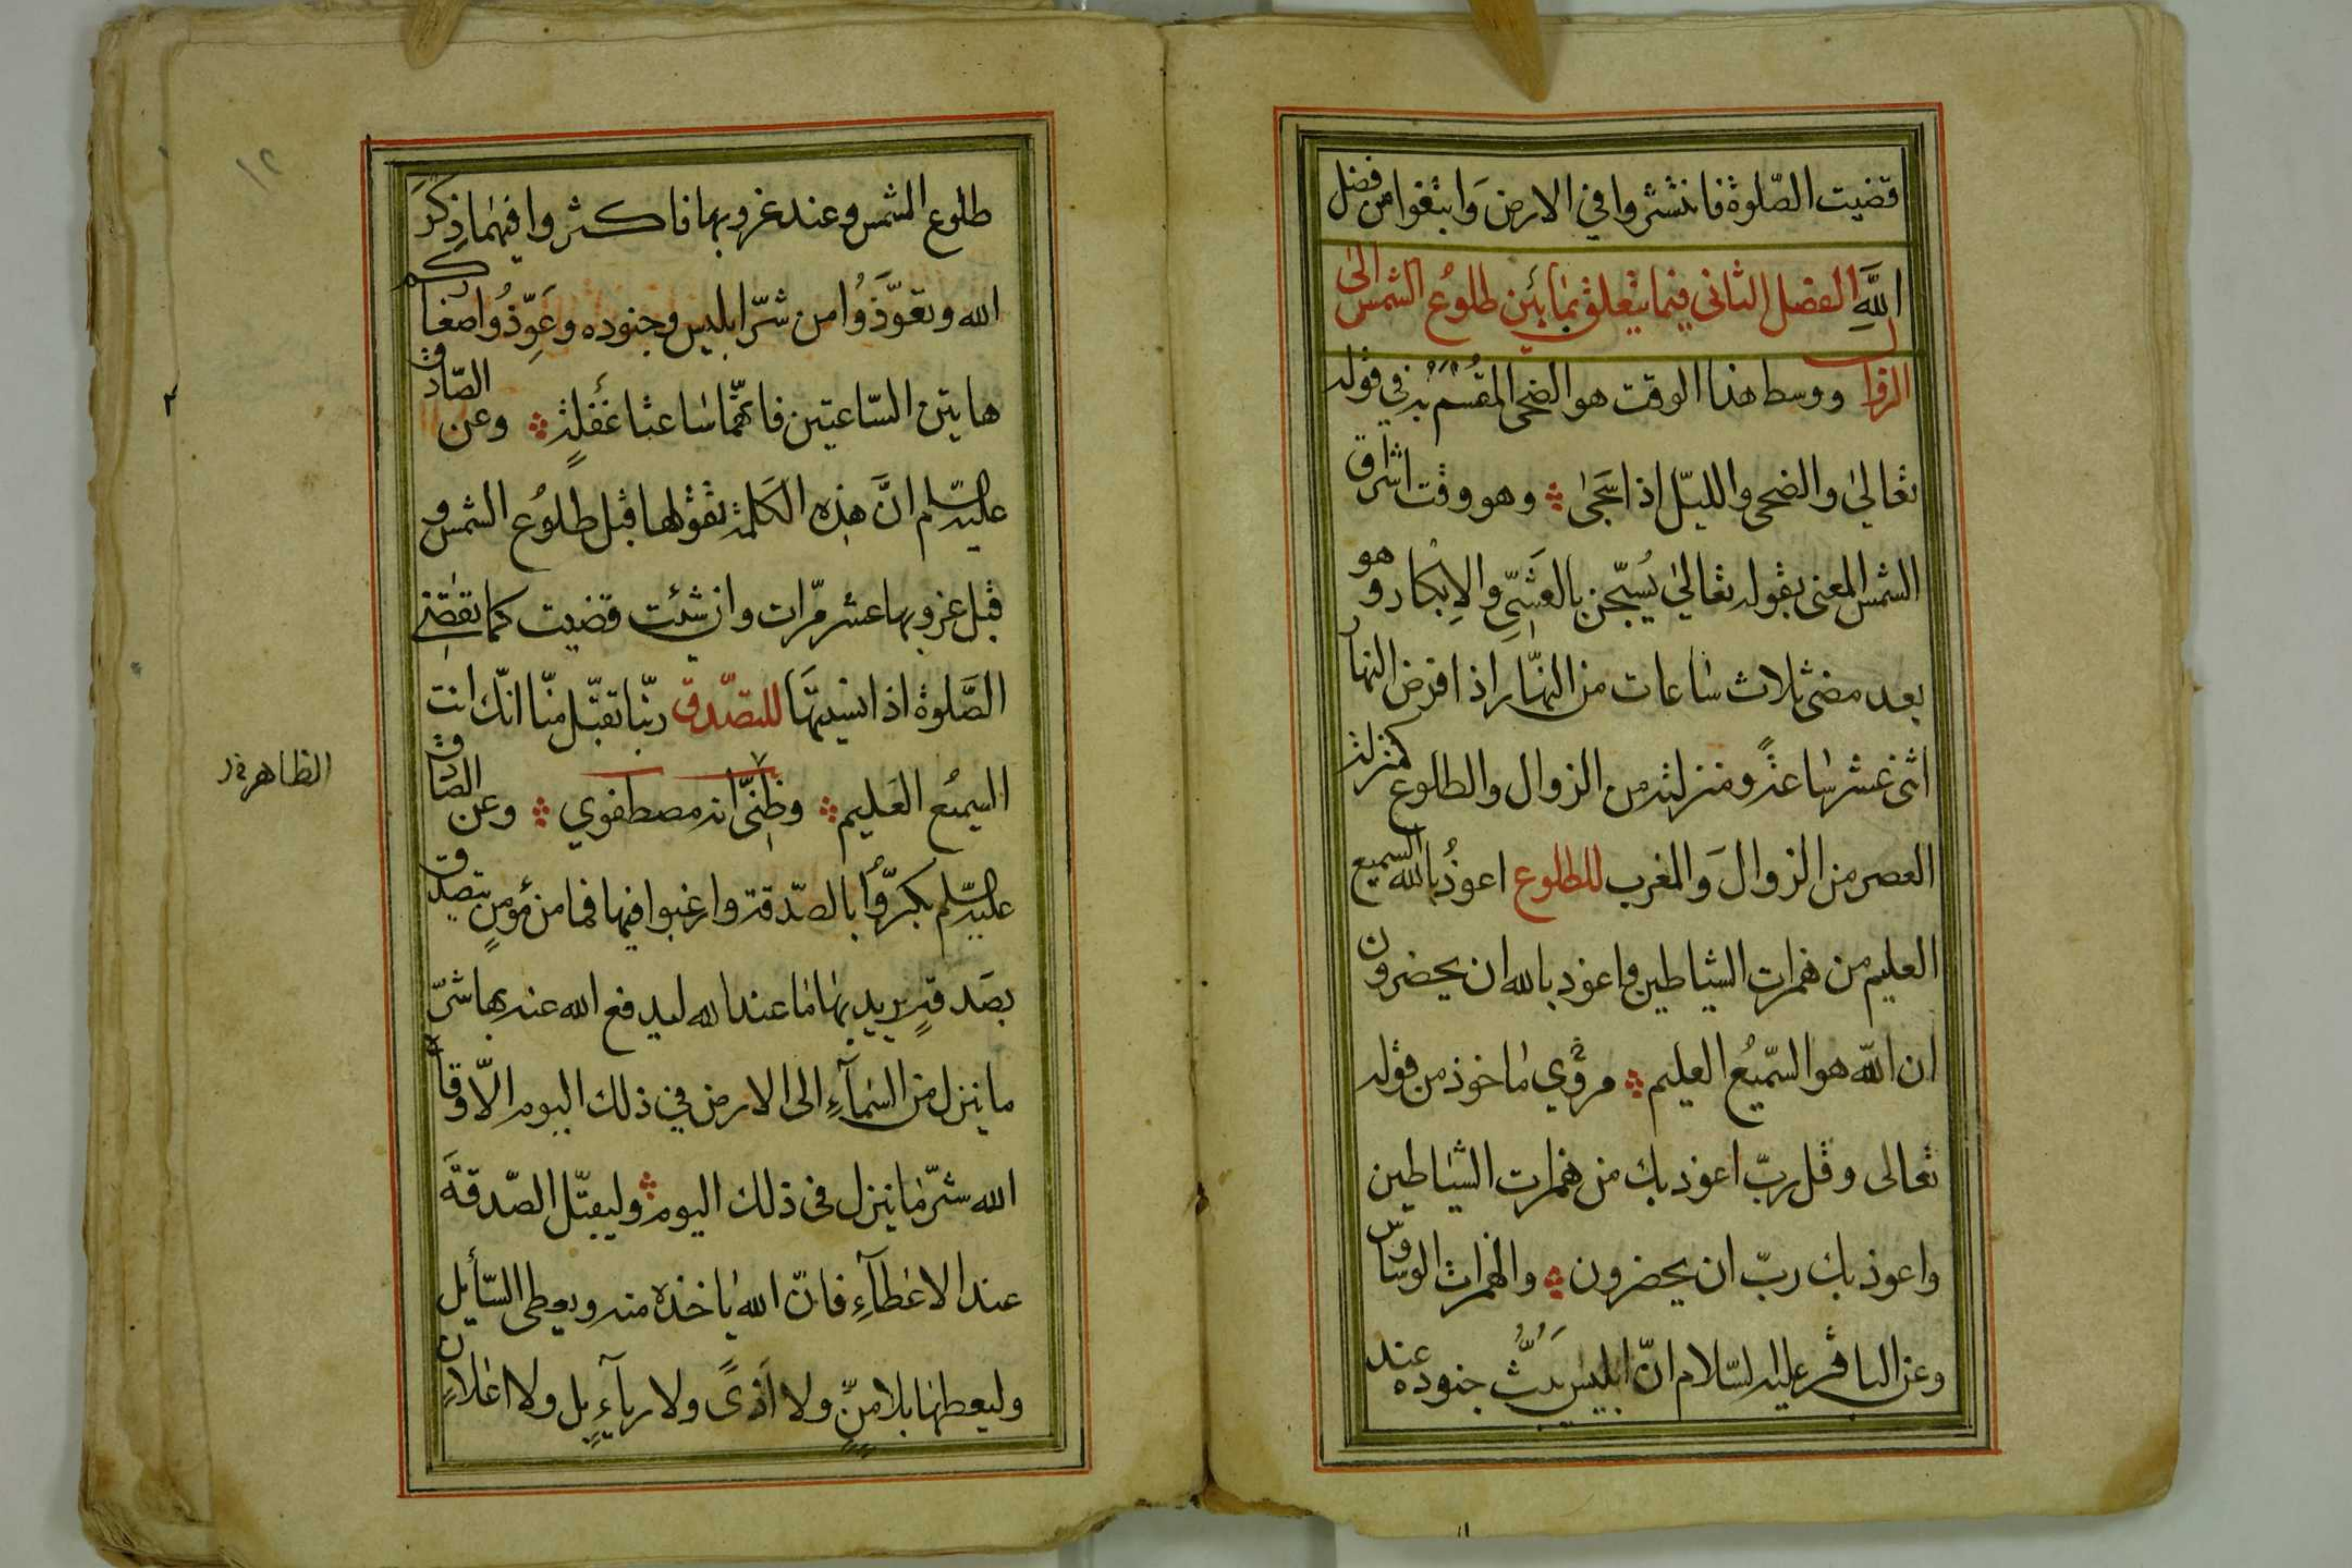 قضيت الصّلوة فانتشروا في الارض وَابتغوا من فضل
اللَّهِ الفصل الثانى فيما يتعلق بما بَيْن طلوُع الشمس الىٰ
الزوال ووسط هذا الوقت هو الضحى المُقْسَمْ به في قوله
تعالىٰ والضحى والليل اذا سَجىٰ وهو وقت اشراق
الشمس المعنى بقوله تعالىٰ يُسبّحن بالعَشىّ والاِبكار وهو
بعد مضى ثلاث سٰاعات من النهّار اذا فرض النهار
اثنى عشر سٰاعةً ومنزلته من الزوال والطلوع كمنزلة
العصر من الزوال وَالمغرب للطلوع اعوذُ بالله السميع
العليم من همزات الشياطين واعوذ بالله ان يحضرون
ان اللّه هو السّميُع العليم مروي مٰاخوذ من قوله
تعالى وقل ربّ اعوذ بك من همزات الشيٰاطين
واعوذ بك ربّ ان يحضرون والهمزات الوساوس
وعن الباقر عليه السّلام انّ ابليس يَبُثُّ جنوده عند
طلوع الشمس وعند غروبها فاكثروا فيهمٰا ذِكرَ
الله وتعوَّذوُا من شرّ ابليس وجنوده وعَوِّذوُا صغاركم
هاتين السّاعتين فانّهمٰا سٰاعتا غَفْلةٍ وعن الصّادق
عليه السّلم انَّ هذِه الكَلمة تقوُلها قبل طلوُع الشمس و
قبل غروبها عشر مرّات وان شئت قضيت كما تقضِى
الصَّلوة اذا نسيتهَا للتصّدق ربّنا تقبّل منّا انّك انت
السميُع العَليم وظِنىّ انه مصطفوي وعن الصّادق
الظاهر
عليه السّلم بكرّوُا بالصّدقة وارغبوا فيها فما من مُؤمنٍ يتصدق
بصَدقةٍ يريد بهٰا مٰا عند الله ليدفع الله عنه بها شرّ
ما ينزل من السّمآءِ الى الارض في ذلك اليوم الّا وقاه
الله شرّ مٰا ينزل فى ذلك اليوم وليقبّل الصّدقةَ
عند الاعٰطآءِ فانّ الله يٰاخذه منه ويعطى السّأيل
وليعطهٰا بلا منٍّ ولا اَذىً ولا ريآءٍ بل ولا اعٰلانٍ